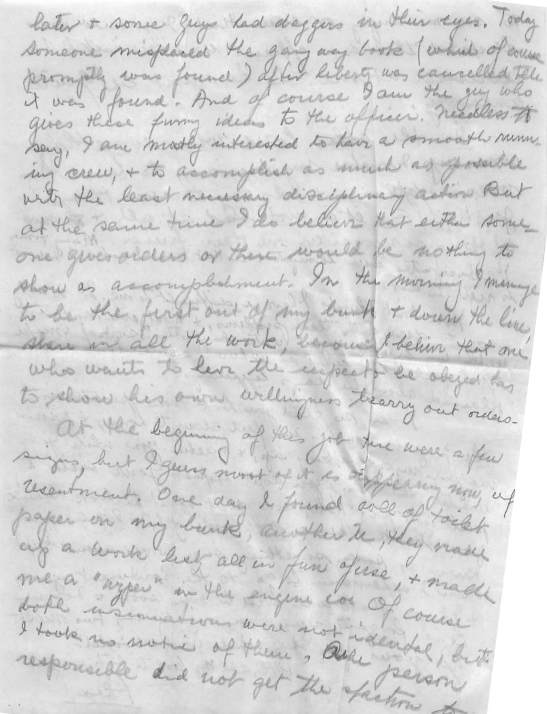 later + some guys had daggers in their eyes. Today
someone misplaced the gangway book (which of course
promptly was found) after liberty was cancelled till
it was found. And of course I am the guy who
gives these funny ideas to the officer. Needless to
say, I am mostly interested to have a smooth runn-
ing crew, + to accomplish as much as possible
with the least necessary disciplinary action But
at the same time I do believe that either some-
one gives orders or there would be nothing to
show as accomplishment. In the morning I manage
to be the first out of my bunk + down the line,
share in all the work, because I believe that one
who wants to have the respect + be obeyed has
to show his own willingness to carry out orders-
At the beginning of this job there were a few
signs, but I guess most of it is now, of
resentment. One day I found roll of toilet
paper on my bunk, another, they made
up a work list, all in fun of course, + made
me a "wiper" in the engine Of course
both insinuations were not, but
I took no notice of them, the person
responsible did not get the to